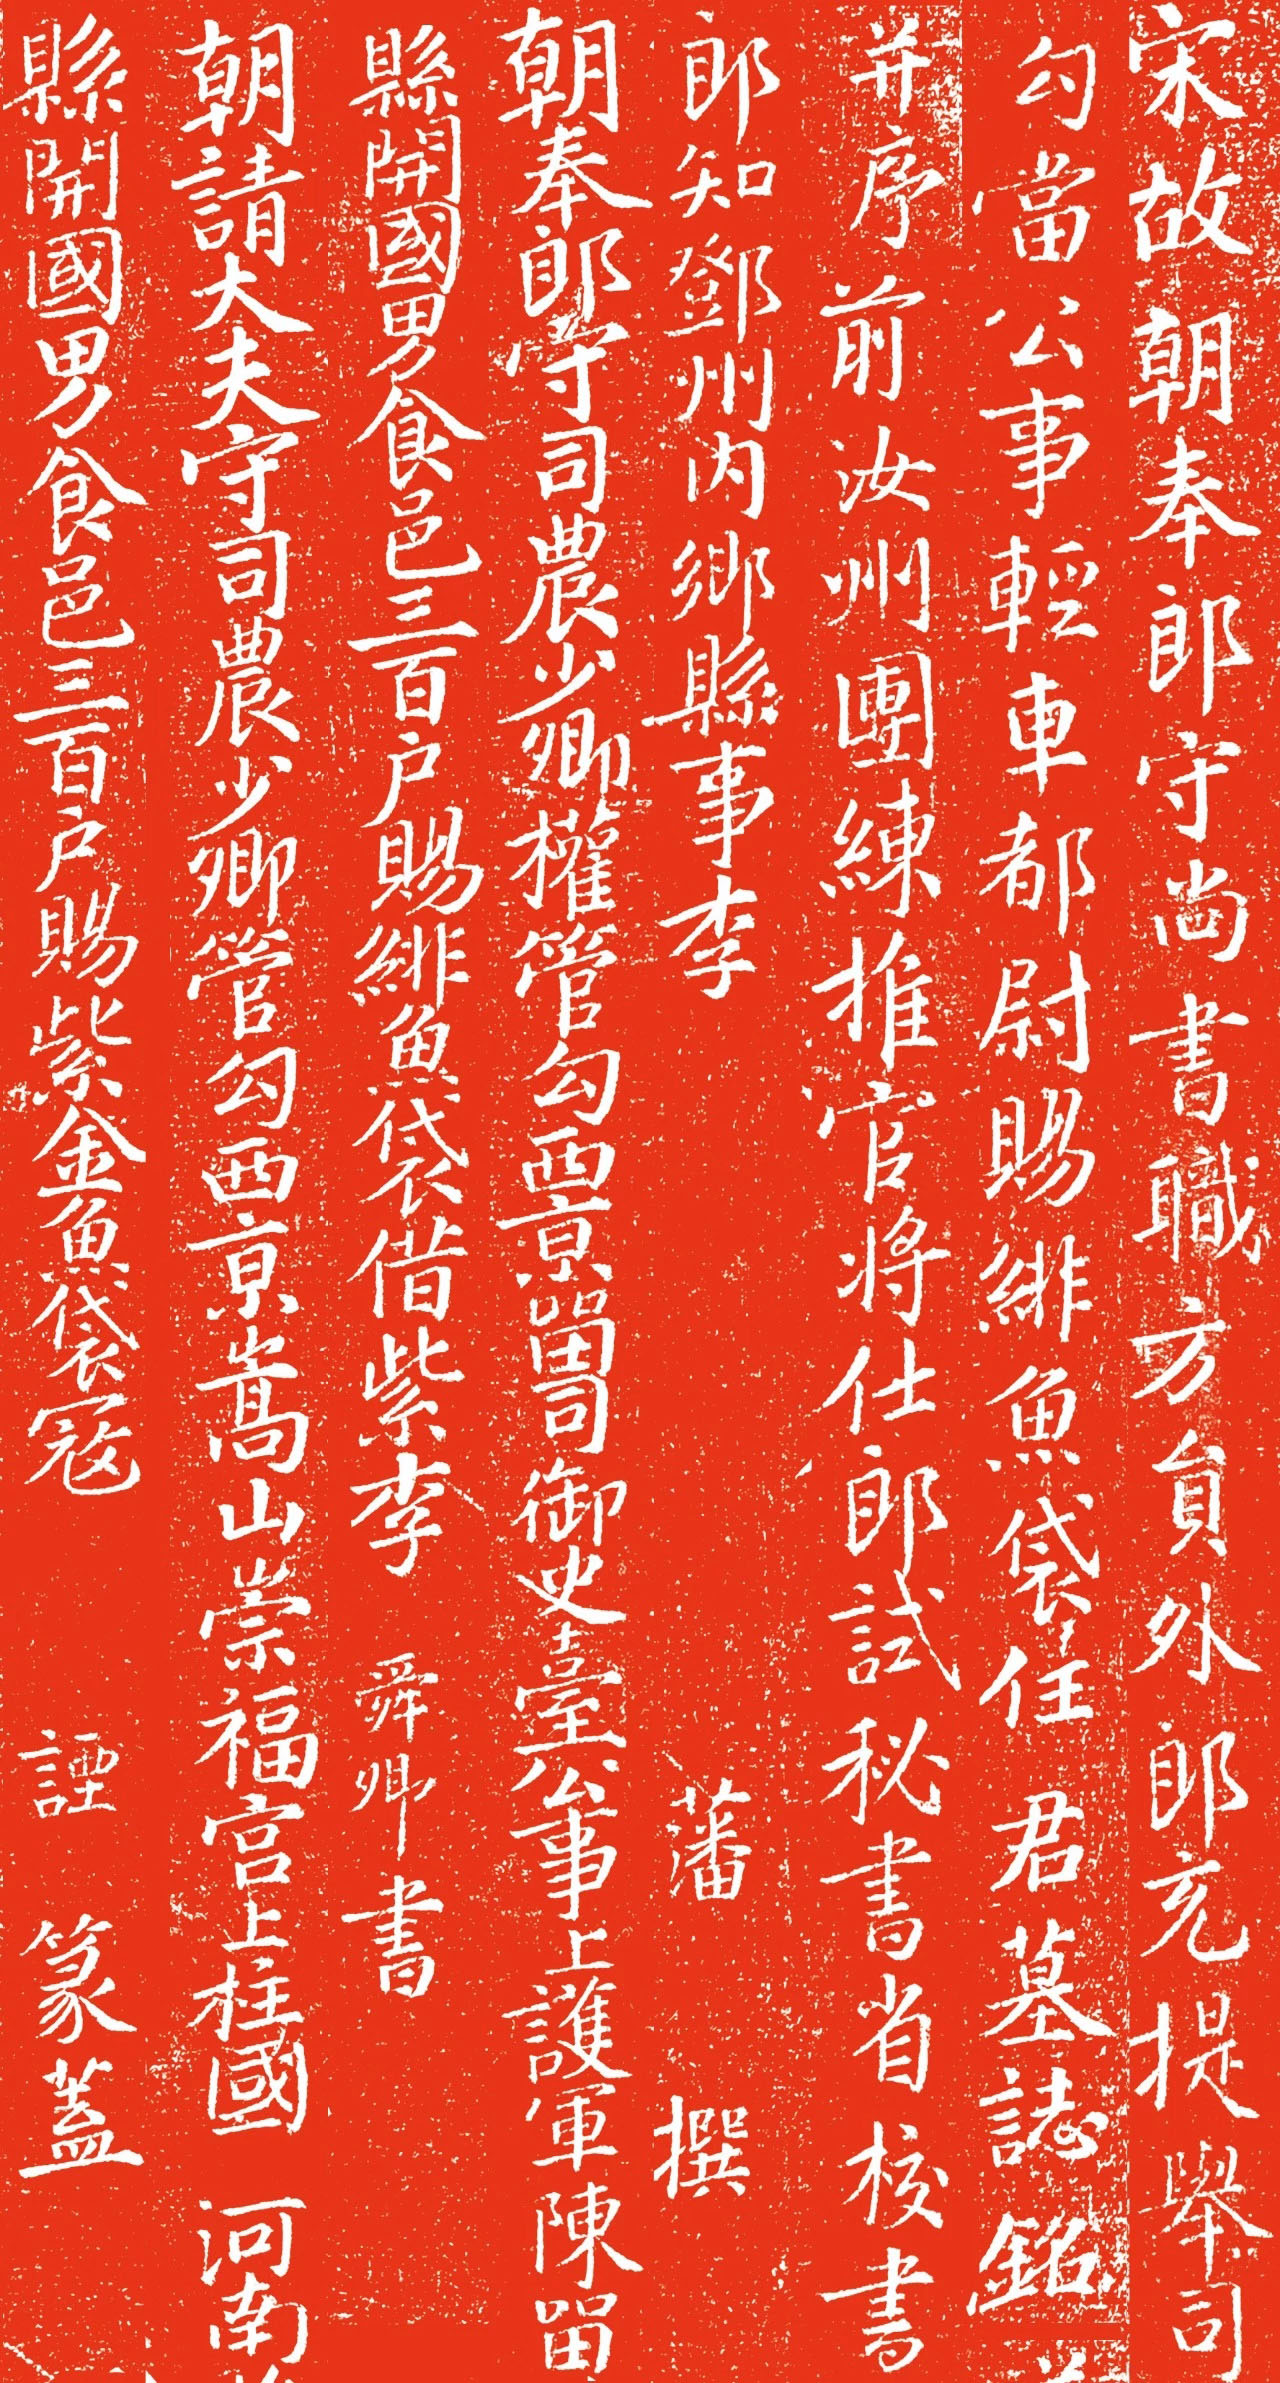 宋故朝奉郎守尚書職方員外郎充提舉司
勾當公事輕車都尉賜緋魚袋任君墓誌銘
并序前汝州團練推官將仕郎試秘書省校書
郎知鄧州内鄉縣事李藩撰
朝奉郎守司農少卿權管勾西京留司御史臺公事上護軍陳留
縣開國男食邑三百户賜緋魚袋借紫李舜卿書
朝請大夫守司農少卿管勾西京嵩山崇福宫上柱國河南
縣開國男食邑三百户賜紫金魚袋寇諲篆蓋